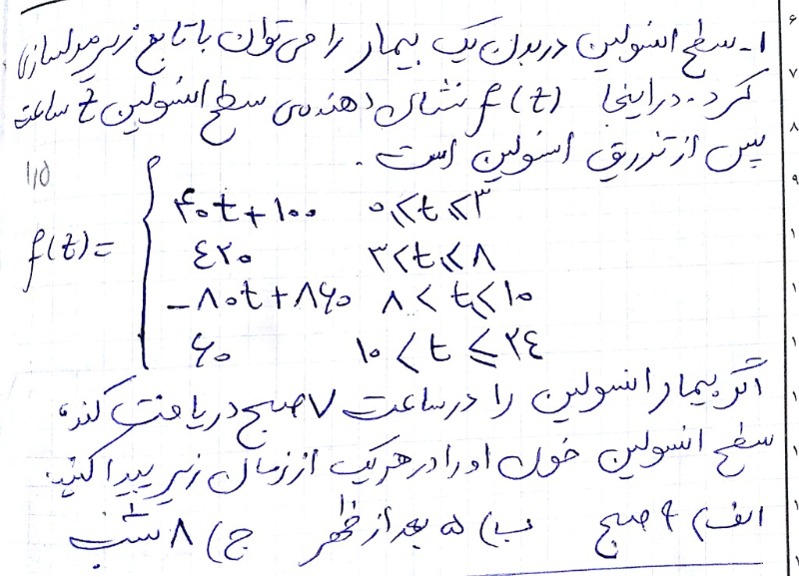 ۱- سطح انسولین در بدن یک بیمار را می‌توان با تابع زیر مدلسازی
کرد. در اینجا f(t) نشان دهنده‌ی سطح انسولین t ساعت
پس از تزریق انسولین است.
۱٫۵
f(t) =
۴۰t+۱۰۰ ۰≤t≤۳
٤۲۰ ۳<t≤۸
-۸۰t+۸۶۰ ۸<t≤۱۰
۶۰ ۱۰<t≤۲٤
اگر بیمار انسولین را در ساعت ۷ صبح دریافت کند،
سطح انسولین خون او را در هر یک از زمان زیر پیدا کنید.
الف) ۹ صبح ب) ۵ بعد از ظهر ج) ۸ شب
۶
۷
۸
۹